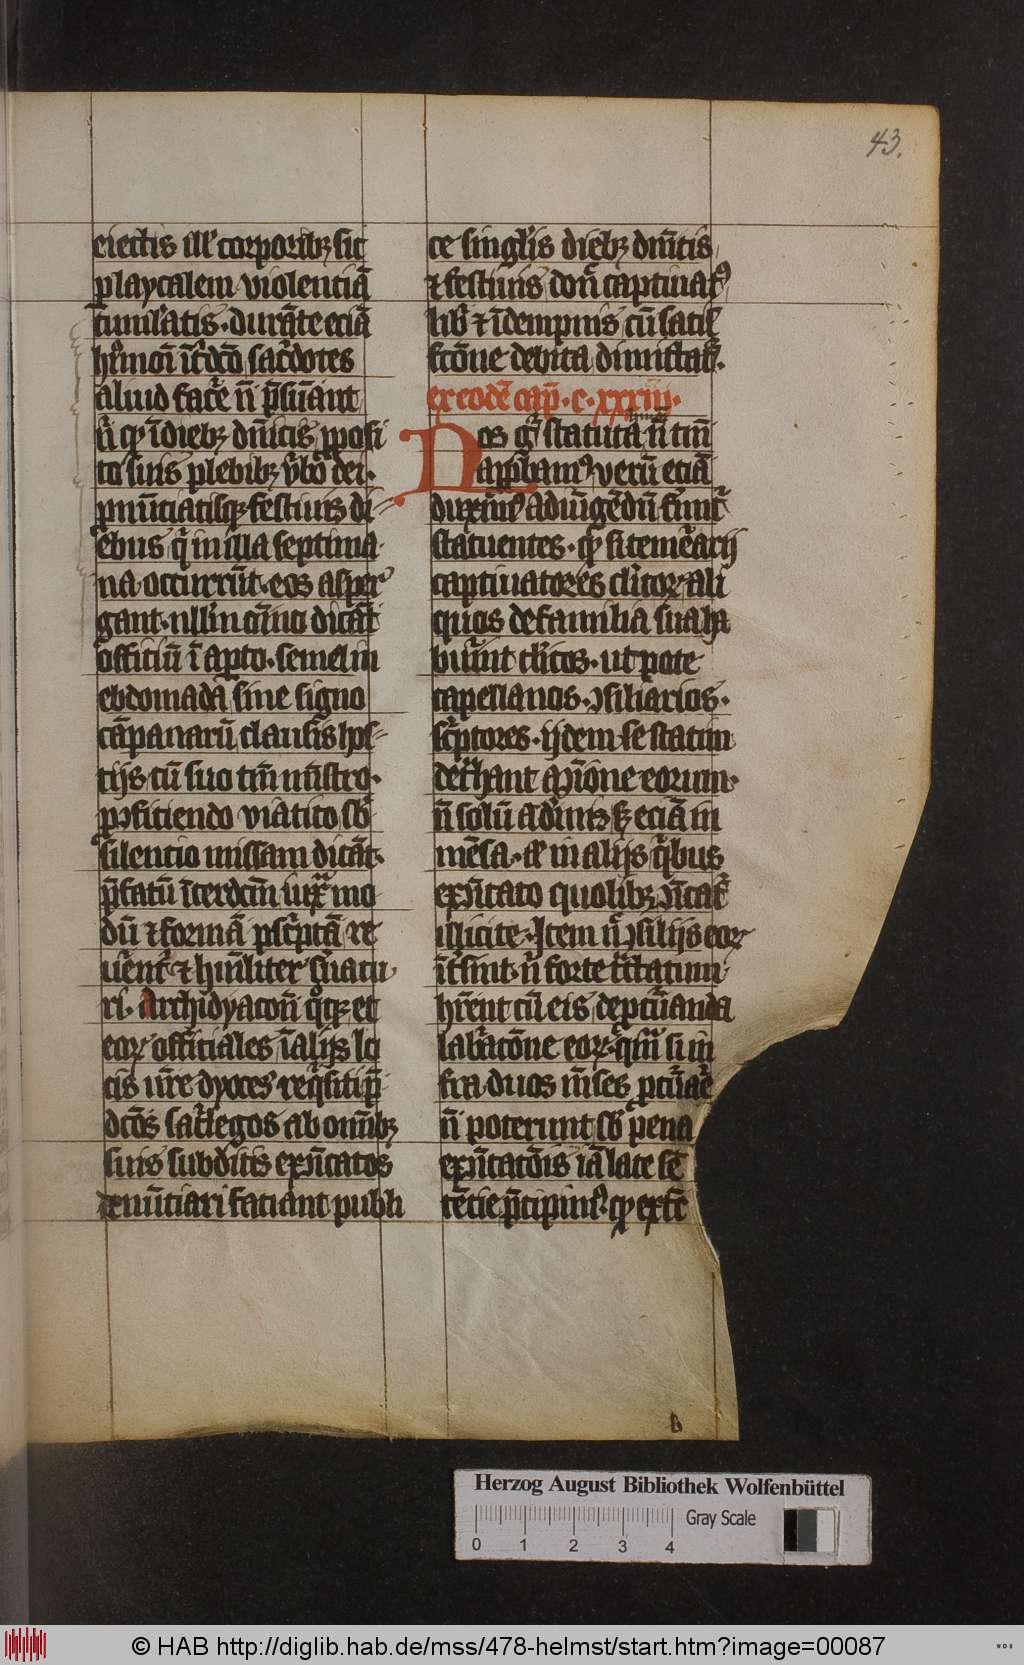 43.
eiectis ill' corporibꝫ sic
p laycalem violentiā
tumulatis · durāte eciā
hmōi īt'dc̄o sac'dotes
aliud fac'e nō p̄sūant
n' qꝫ ī diebꝫ dn̄icis p̄posi
to suis plebibꝫ v'bo dei ·
pnūciatisqꝫ festiuis di
ebus q' in illa septima
na occurrūt · eos asper
gant · nll'm om̄ino dicāt
officiū ī apto · semel in
ebdomada sine signo
cāpanarū clausis hos
tijs cū suo tm̄ mīstro ·
p ꝯficiendo viatico sb'
silencio missam dicāt ·
p̄fatū īterdcm̄ iuxᵃ mo
dū ⁊ formā pscⁱptā re
uerent' ⁊ hūil'iter s'uatu
ri · Archidyaconi qͦqꝫ et
eoꝝ officiales ī alijs lo
cis n're dyoces' reqⁱsiti p̄
dc̄os sac'legos ab om̄ibꝫ
suis subditis exꝯicatos
denūciari faciant publi
ce singl'is diebꝫ dn̄icis
⁊ festiuis don' captiuat'
lib' ⁊ īdempnis cū satis
fcōne debita dimittat' ·
ex eodē cap̄ · c · xxxiiij ·
Nos g' statuta hmōi nō tm̄
approbamꝰ verū eciā
duximꝰ adiūgēdū firmit'
statuentes · qꝫ si tem'arij
captiuatores cl'icoꝝ ali
quos de familia sua ha
buerint cl'icos · ut pote
capellanos · ꝯsiliarios ·
scⁱptores · ijdem se statim
det'hant a ꝯm̄ione eorum ·
nō solū a diuīs sꝫ eciā in
mēsa · ⁊ in alijs qⁱbus
exꝯicato quolibꝫ ꝯīcat'
illicite · Item n' ꝯsilijs eoꝝ
īt'sint · n' forte t'ctatum
hr̄ent cū eis de pcu'anda
lib'acōne eoꝝ · qᵒs si in
fra duos mēses pcu'are
nō poterunt sb' pena
exꝯicatōis iā late sē
tēcie p̄cipimꝰ · qꝫ extūc
b
Herzog August Bibliothek Wolfenbüttel
Gray Scale
0 1 2 3 4
© HAB http://diglib.hab.de/mss/478-helmst/start.htm?image=00087
WDB